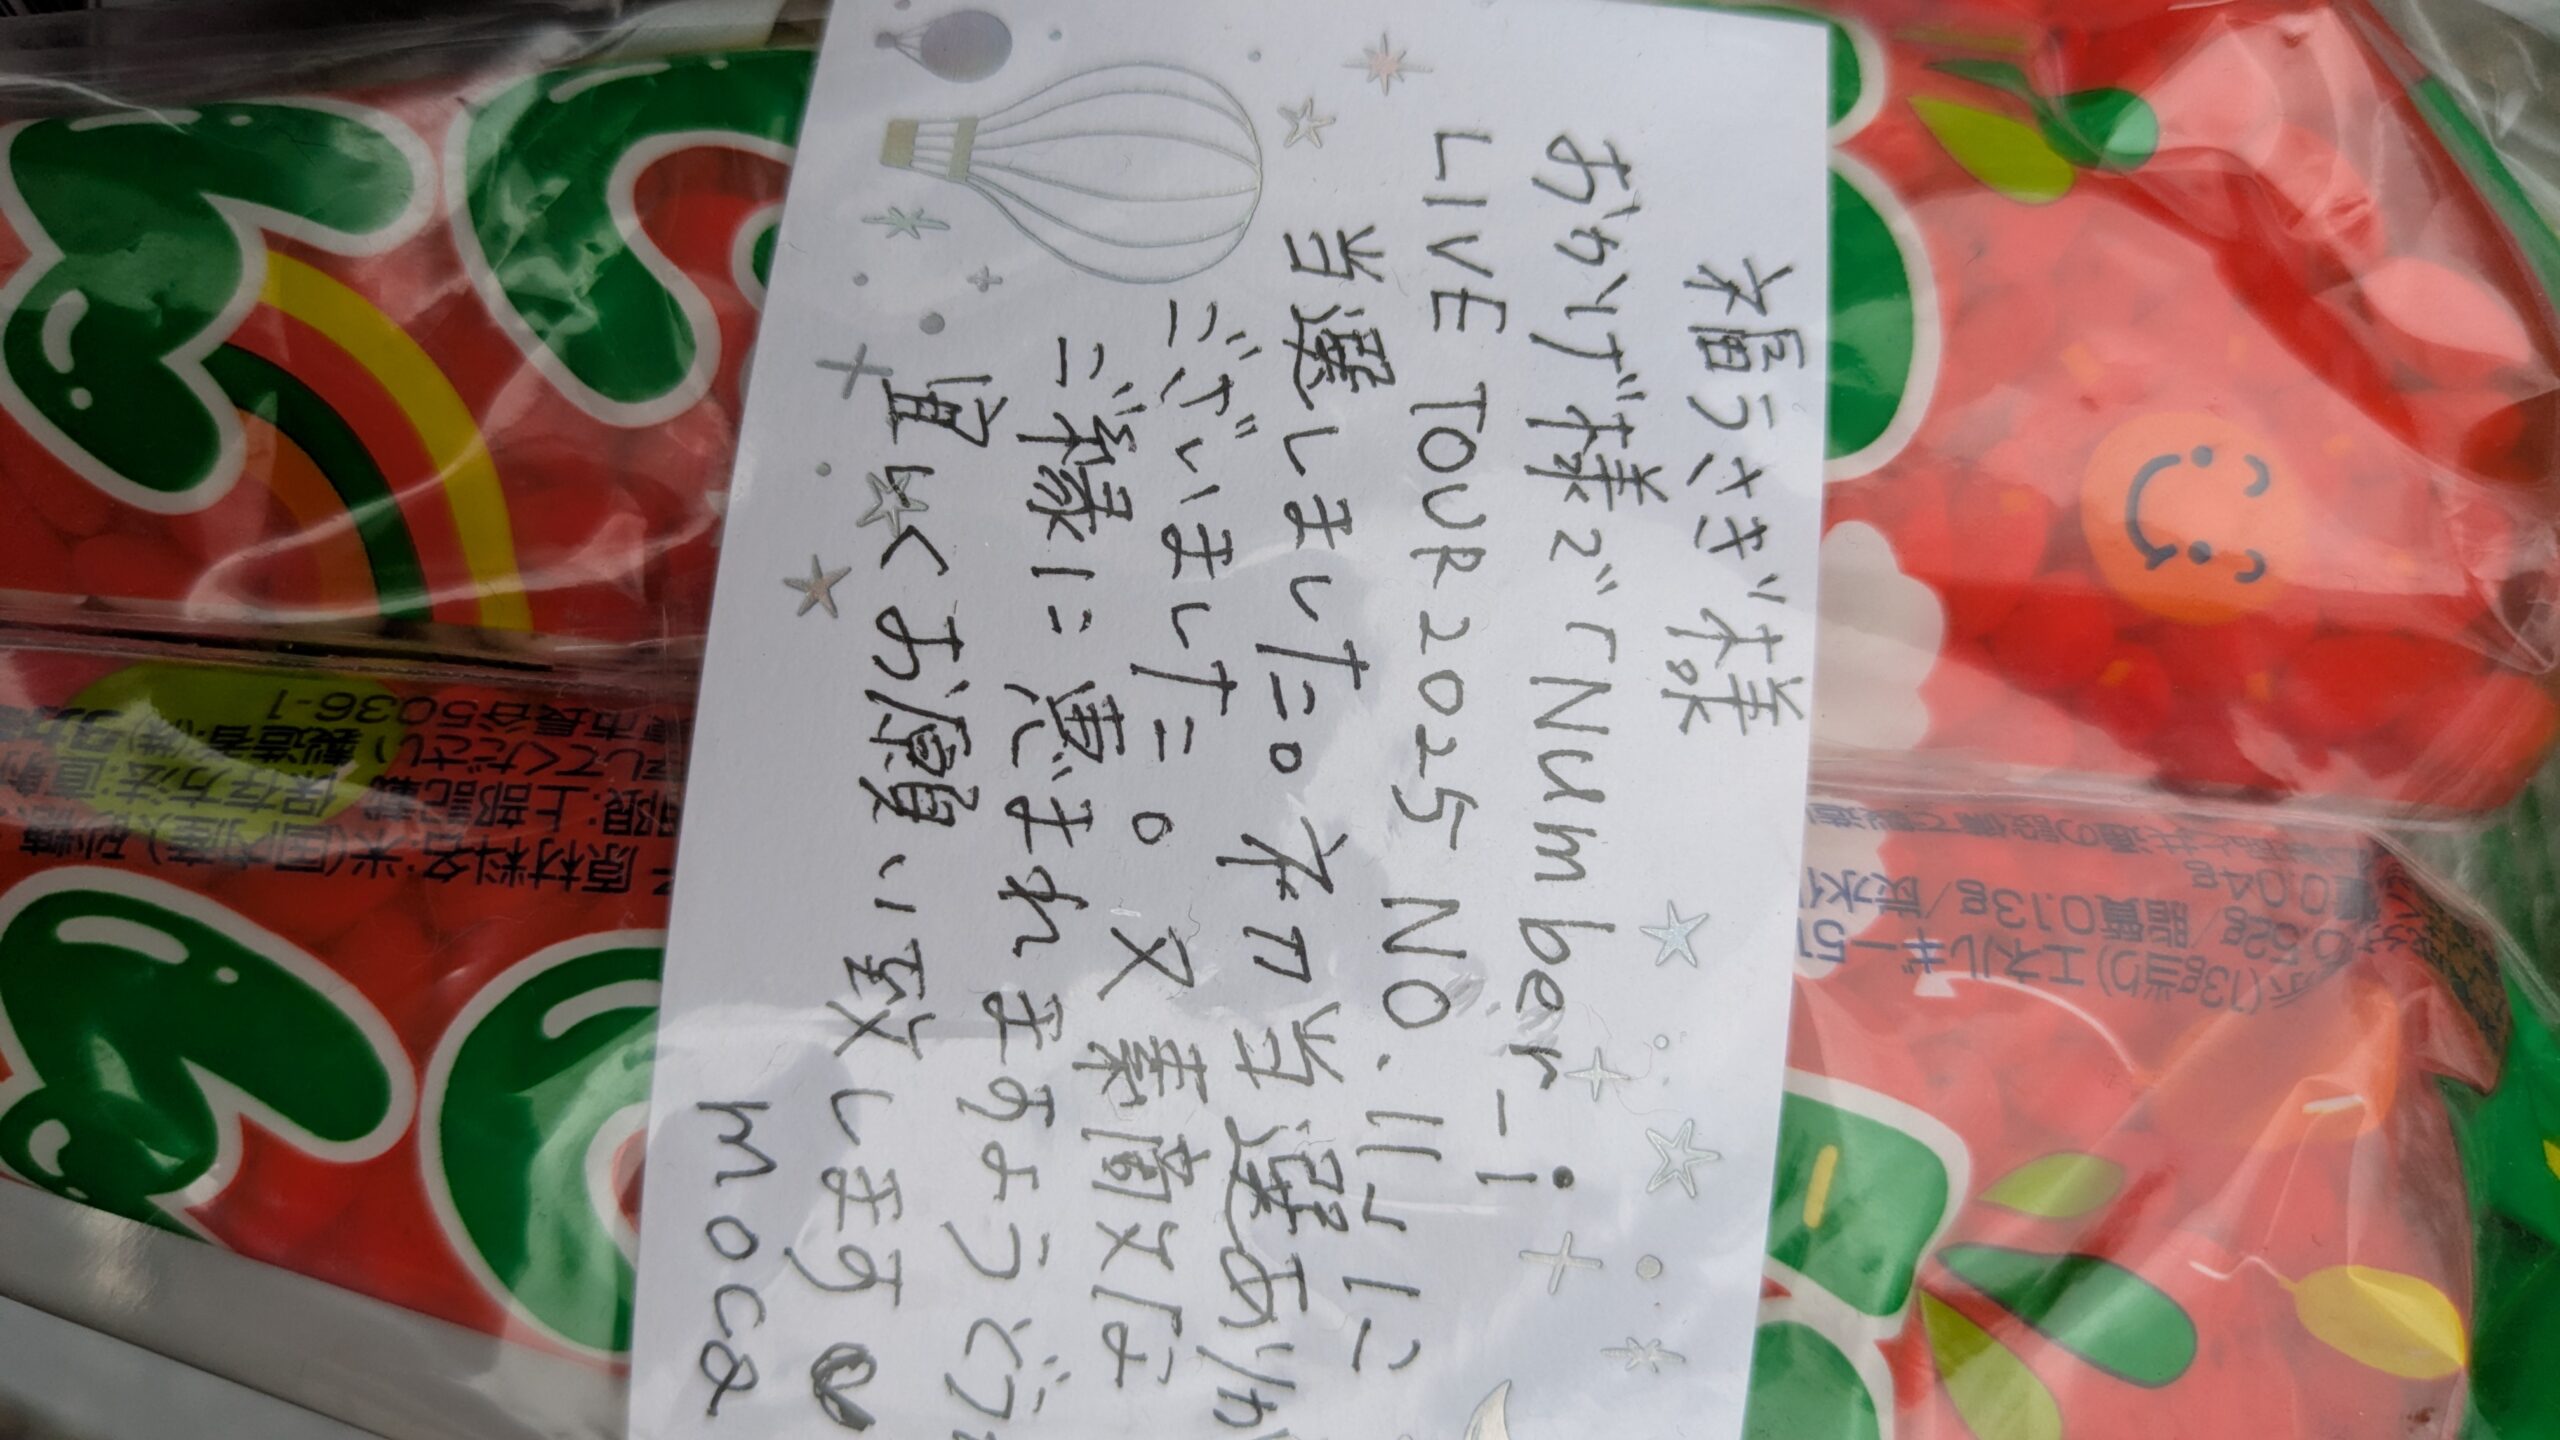 福うさぎ様
おかげ様で「Number_i
LIVE TOUR 2025 NO.Ⅱ」に
当選しました。初当選ありが
ございました。又素敵な
ご縁に恵まれますようどう
宜しくお願い致します
moca
原材料名:米(国内産)砂糖
限:上部記載 保存方法:直射
してください 製造者:(株)
市長谷5036-1
(13g当り)エネルギー51
0.52g/脂質0.13g/炭水化
0.04g
共通の設備で製造